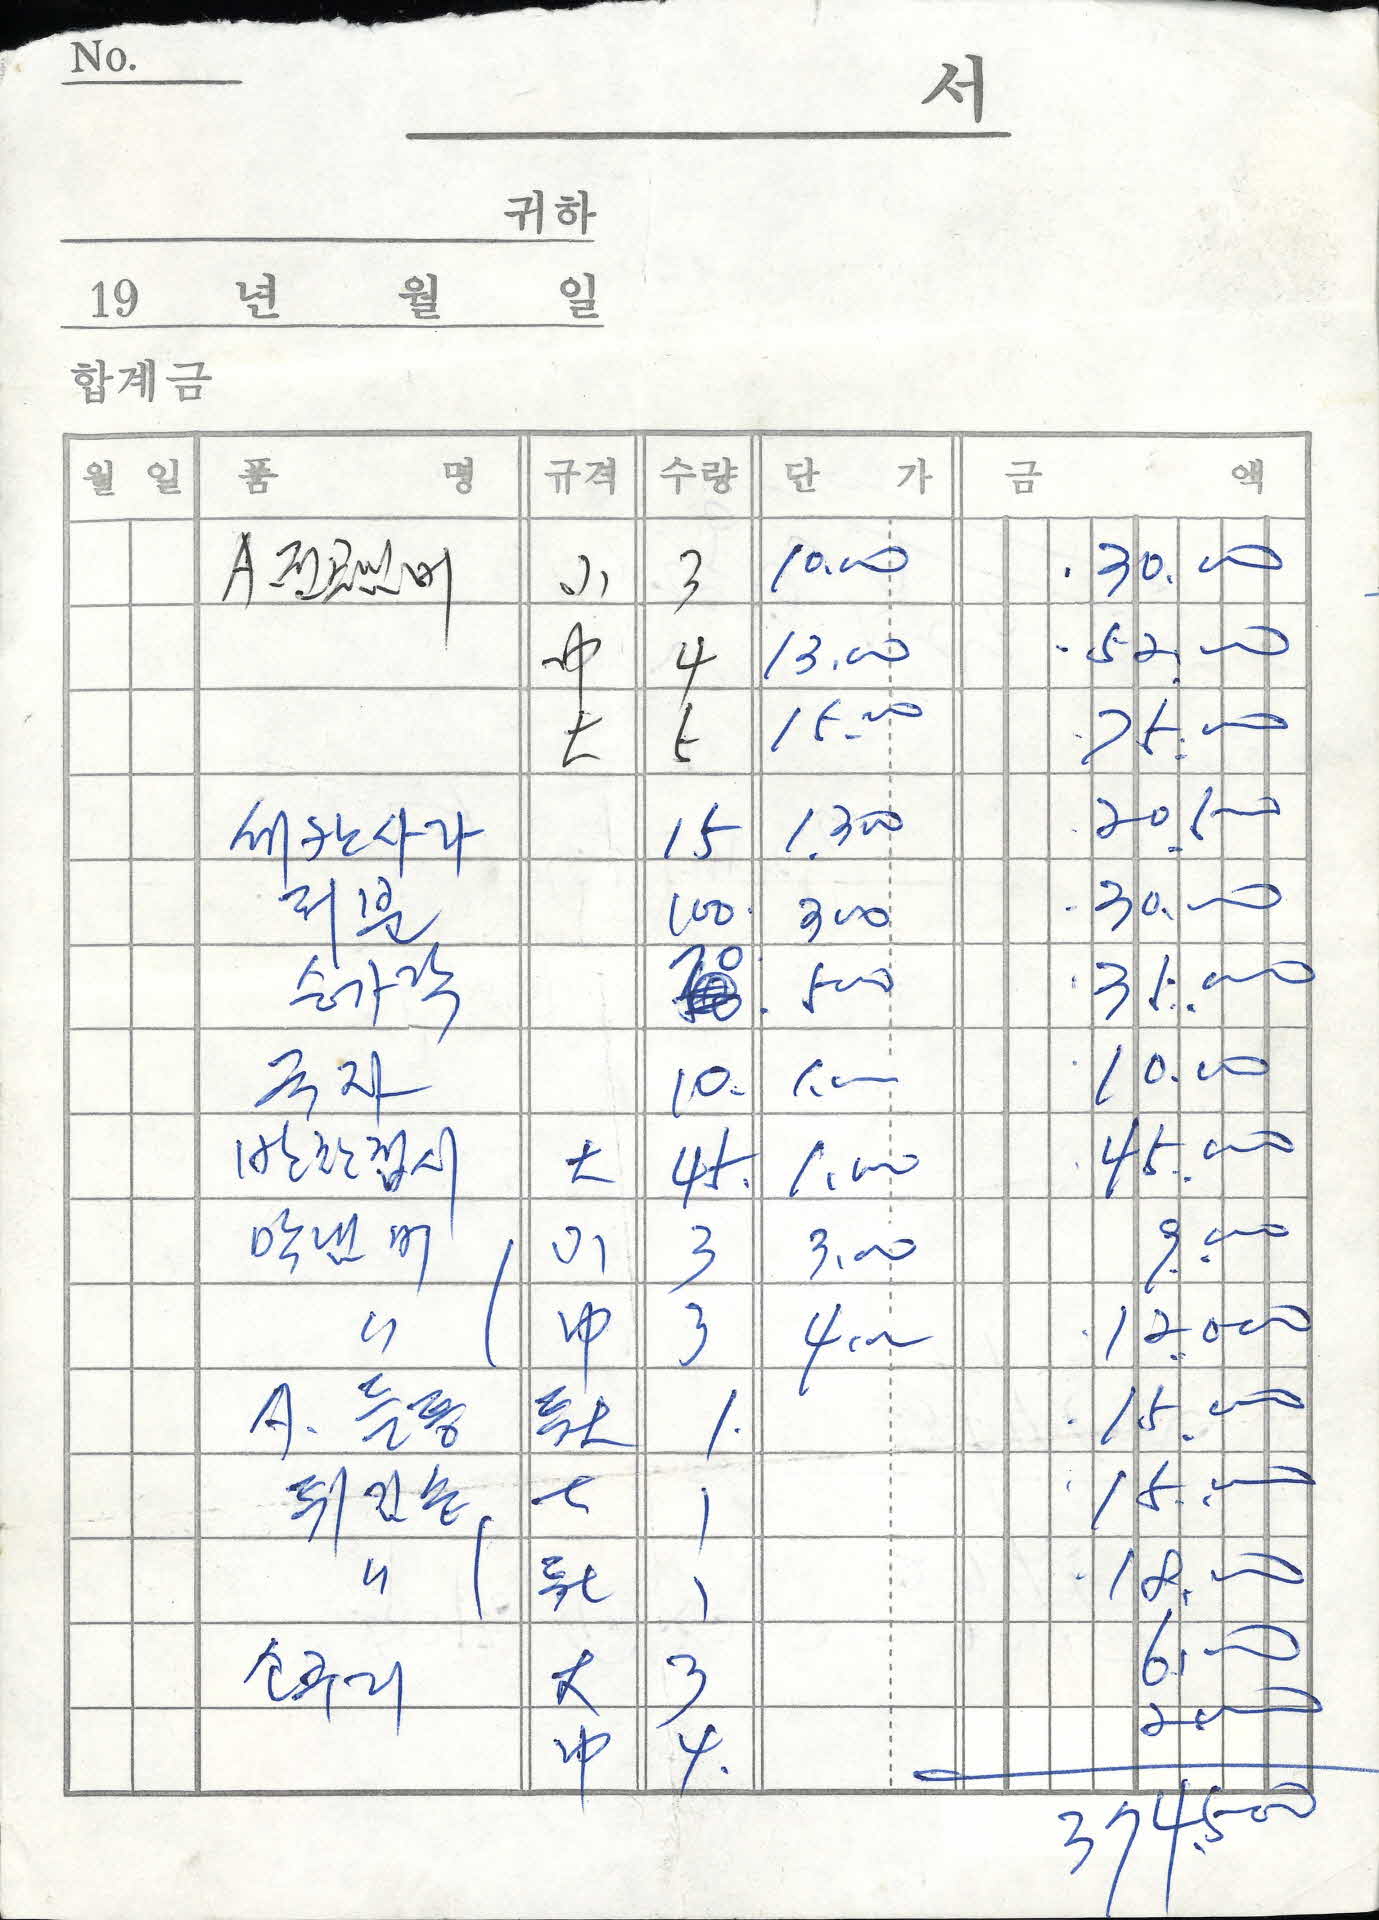 No.
서
귀하
19 년 월 일
합계금
월 일 품 명 규격 수량 단 가 금 액
A 전골냄비 小 3 10.000 30.000
中 4 13.000 52.000
大 5 15.000 75.000
15 1.300 20.500
100. 300 30.000
숟가락 70 500 35.000
국자 10. 1.000 10.000
반찬접시 大 45. 1.000 45.000
막냄비 小 3 3.000 9.000
〃 中 3 4.000 12.000
A. 들통 특大 1. 15.000
튀김솥 大 1 15.000
〃 특大 1 18.000
소쿠리 大 3 6.000
中 4. 2.000
374.500